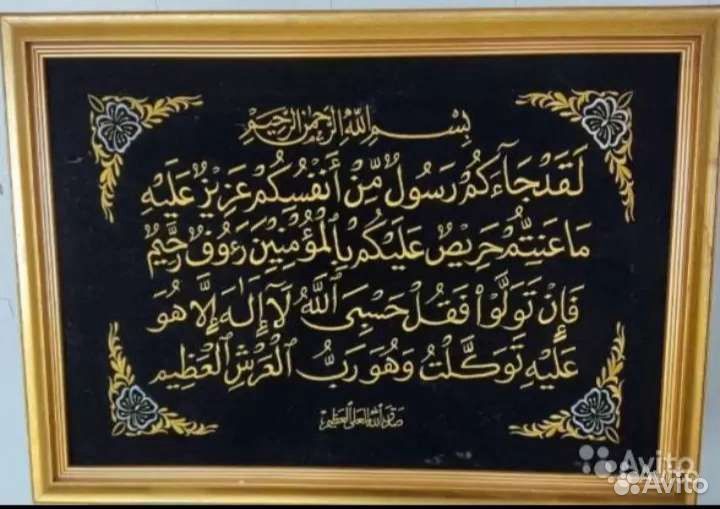 بِسْمِ اللَّهِ الرَّحْمَٰنِ الرَّحِيمِ
لَقَدْ جَاءَكُمْ رَسُولٌ مِّنْ أَنْفُسِكُمْ عَزِيزٌ عَلَيْهِ
مَا عَنِتُّمْ حَرِيصٌ عَلَيْكُمْ بِالْمُؤْمِنِينَ رَءُوفٌ رَّحِيمٌ
فَإِن تَوَلَّوْا فَقُلْ حَسْبِيَ اللَّهُ لَا إِلَٰهَ إِلَّا هُوَ
عَلَيْهِ تَوَكَّلْتُ وَهُوَ رَبُّ الْعَرْشِ الْعَظِيمِ
صدق الله العلي العظيم
Avito
Avito